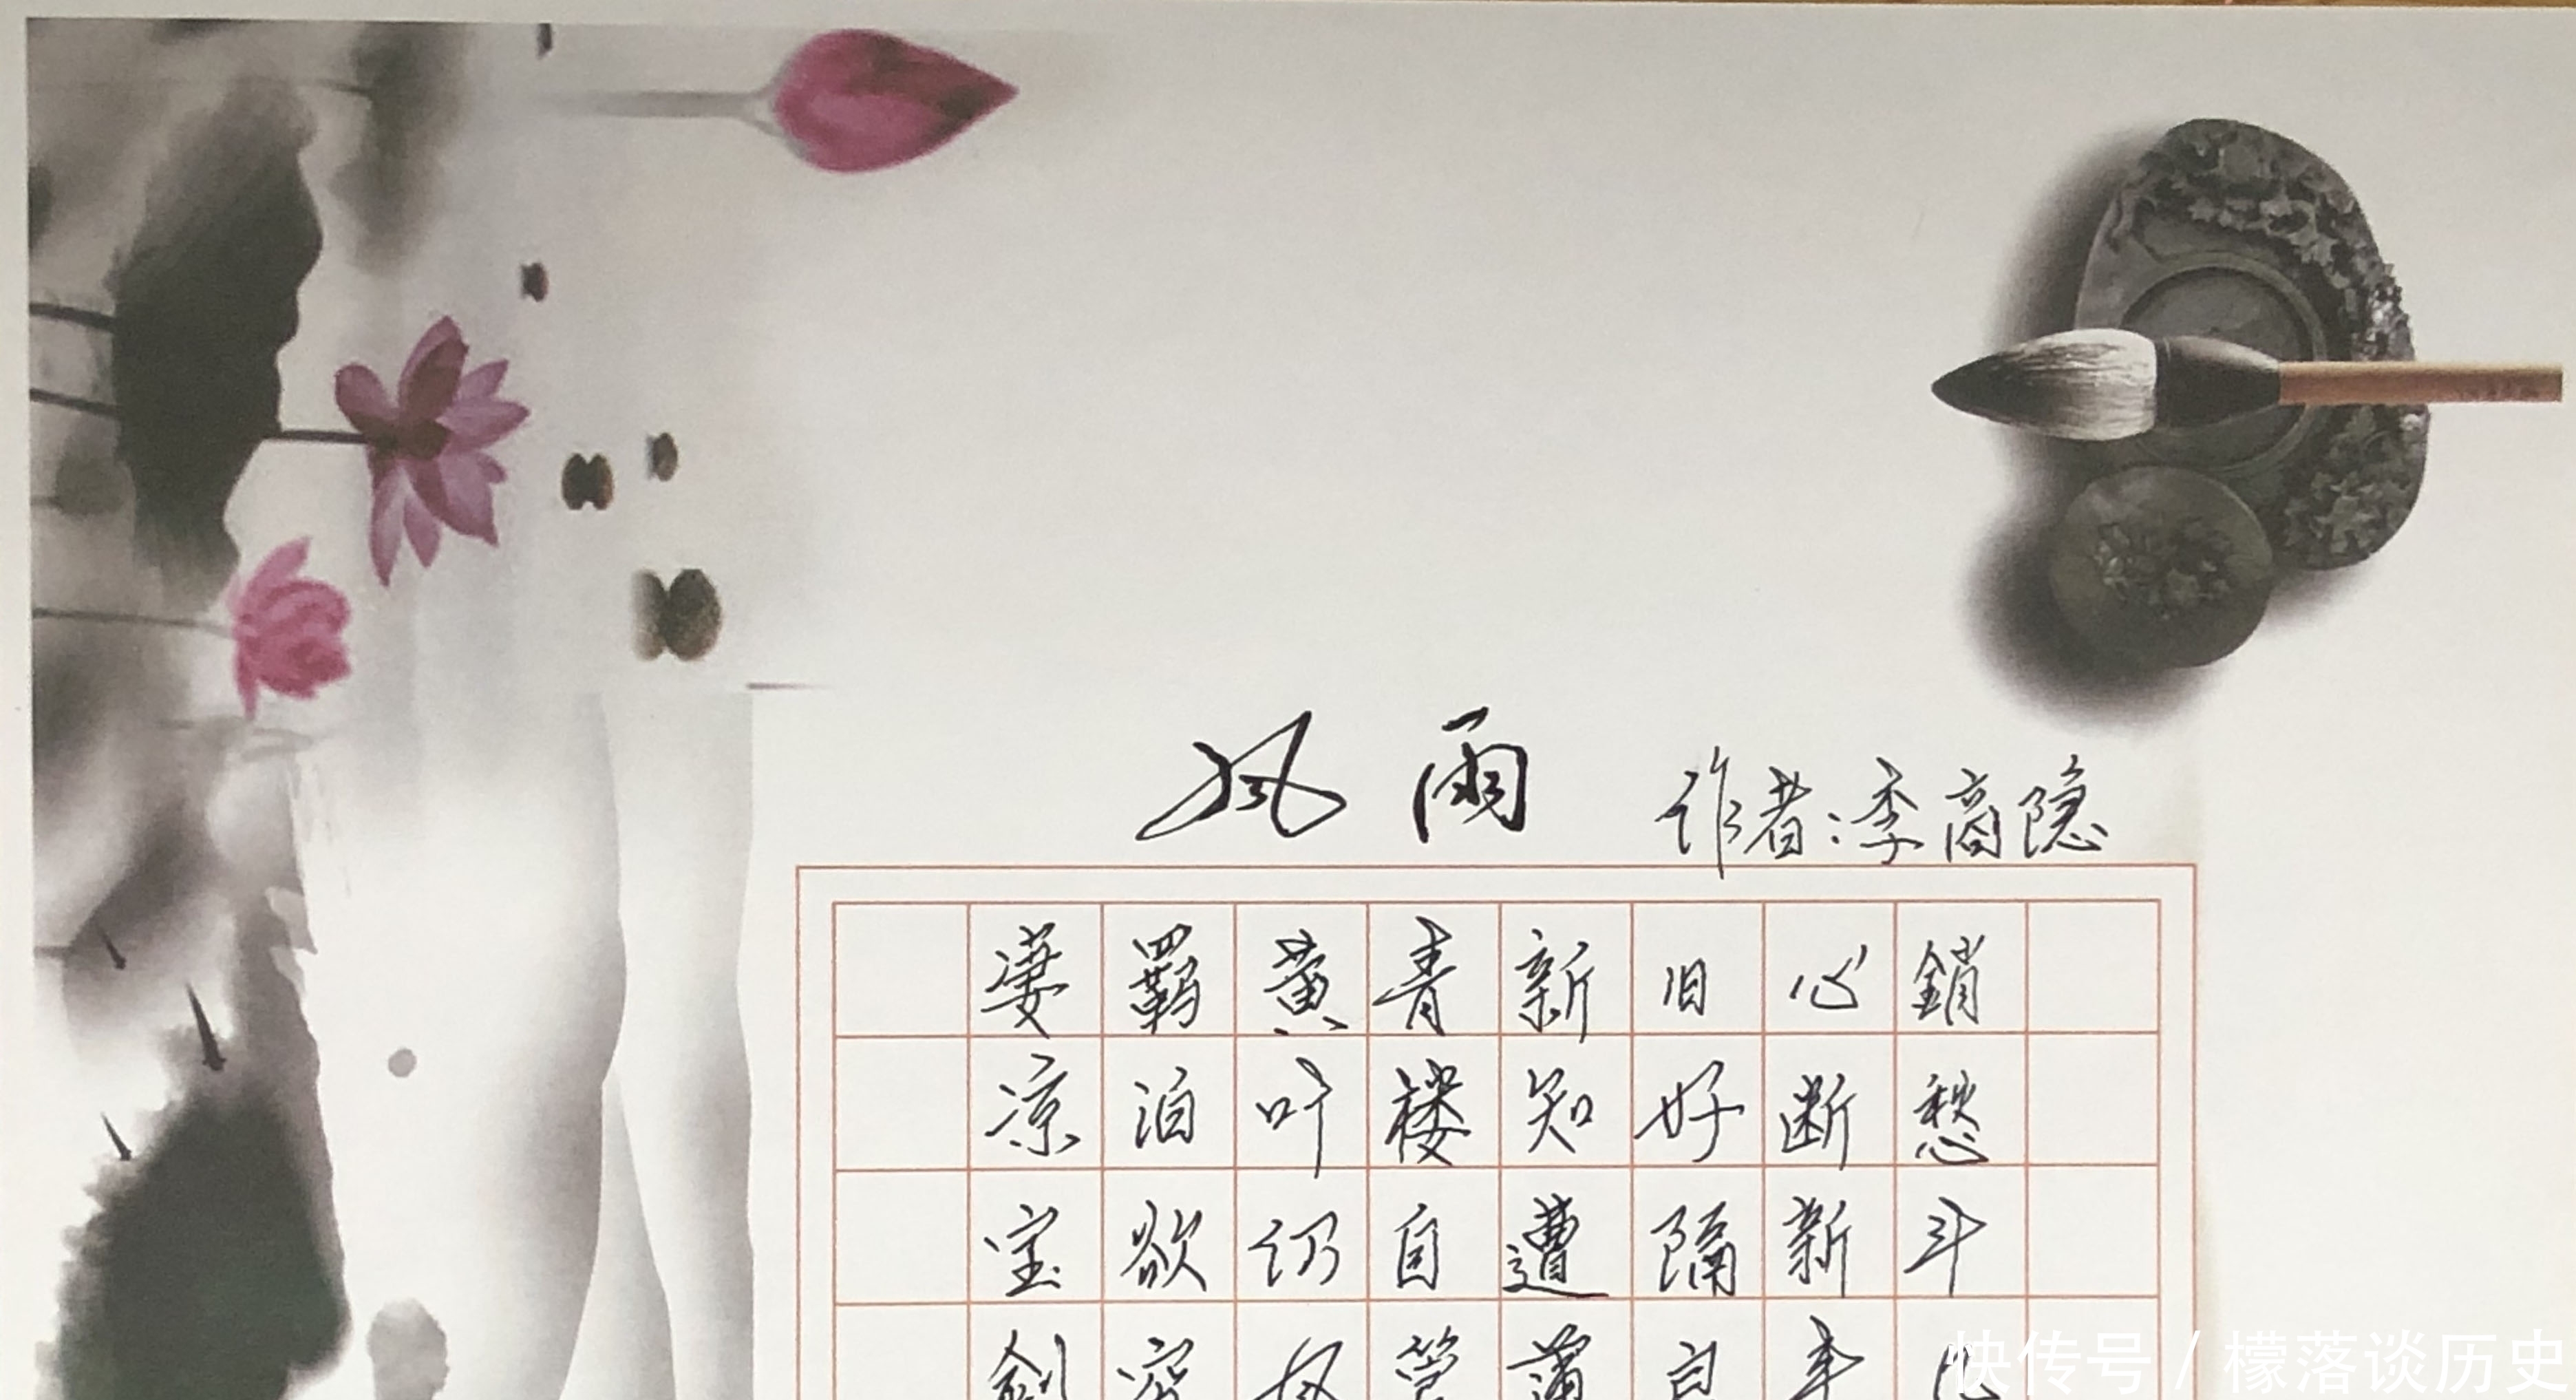 风雨 作者:李商隐
凄凉宝剑
羁泊欲穷
黄叶仍风
青楼自管
新知遭薄
旧好隔良
心断新丰
銷愁斗
快传号 / 檬落谈历史